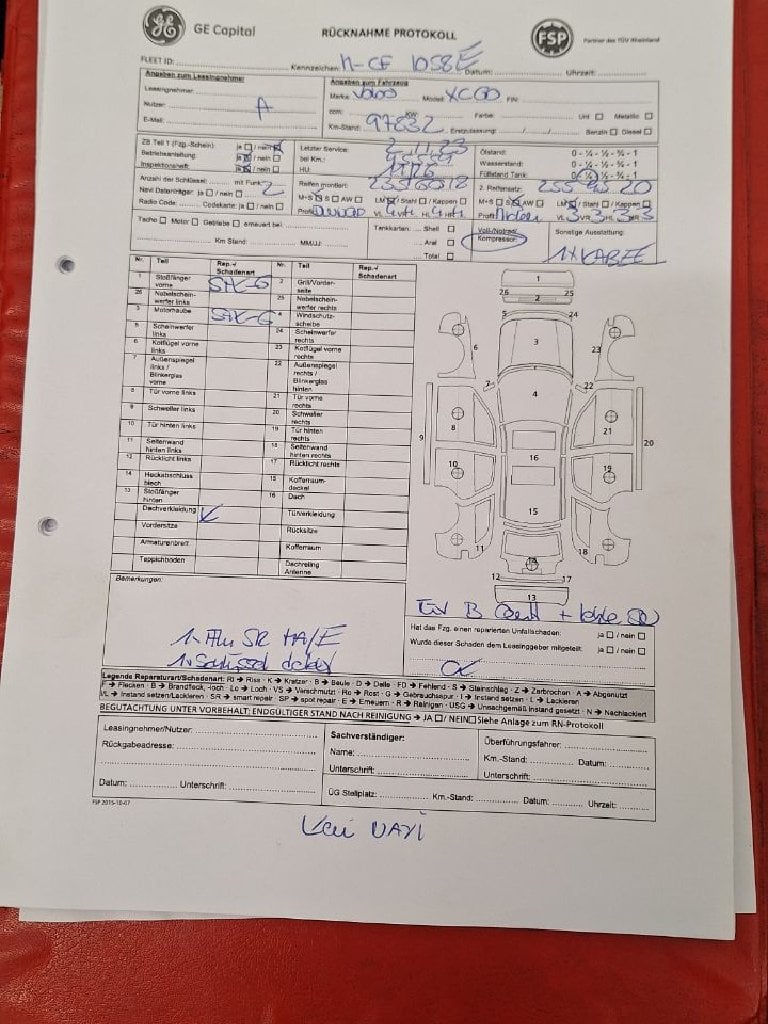 GE Capital
RÜCKNAHME PROTOKOLL
FSP
Partner des TÜV Rheinland
FLEET ID:
Kennzeichen
1058E
Datum:
Uhrzeit:
Angaben zum Leasingnehmer
Angaben zum Fahrzeug
Leasingnehmer:
Marke Volvo
Modell XC60
FIN:
Nutzer:
A
KW
Farbe:
Uni
Metallic
E-Mail:
Km-Stand: 97832
Erstzulassung:
Benzin
Diesel
ZB Teil 1 (Fzg.-Schein): ja / nein
Letzter Service: 2.11.23
Ölstand: 0 - ¼ - ½ - ¾ - 1
Betriebsanleitung ja / nein
bei Km.:
Wasserstand: 0 - ¼ - ½ - ¾ - 1
Inspektionsheft: ja / nein
HU:
Füllstand Tank: 0 - ¼ - ½ - ¾ - 1
Anzahl der Schlüssel: mit Funk: 2
Reifen montiert: 235 60 18
2. Reifensatz: 255 45 20
Navi Datenträger: ja / nein
M+S S AW
LM / Stahl / Kappen
M+S S AW
LM / Stahl / Kappen
Radio Code: Codekarte: ja / nein
Profil
Profil
Tacho Motor Getriebe erneuert bei:
Tankkarten: Shell
Voll-/Notrad/
Kompressor:
Sonstige Ausstattung:
Aral
1x KABEL
Km Stand: MM/JJ:
Total
Nr. Teil Rep.-/ Schadenart Nr. Teil Rep.-/ Schadenart
1 Stoßfänger vorne 2 Grill/Vorderseite
26 Nebelscheinwerfer links 25 Nebelscheinwerfer rechts
3 Motorhaube 4 Windschutzscheibe
5 Scheinwerfer links 24 Scheinwerfer rechts
6 Kotflügel vorne links 23 Kotflügel vorne rechts
7 Außenspiegel links / Blinkerglas vorne 22 Außenspiegel rechts / Blinkerglas hinten
8 Tür vorne links 21 Tür vorne rechts
9 Schweller links 20 Schweller rechts
10 Tür hinten links 19 Tür hinten rechts
11 Seitenwand hinten links 18 Seitenwand hinten rechts
12 Rücklicht links 17 Rücklicht rechts
14 Heckabschluss blech 15 Kofferraumdeckel
13 Stoßfänger hinten 16 Dach
Dachverkleidung Türverkleidung
Vordersitze Rücksitze
Armaturenbrett Kofferraum
Teppichboden Dachreling Antenne
1
26 2 25
5 24
6 3 23
7 22
4
8 21
9 20
16
10 19
15
11 18
14
12 17
13
Bemerkungen:
Hat das Fzg. einen reparierten Unfallschaden: ja / nein
Wurde dieser Schaden dem Leasinggeber mitgeteilt: ja / nein
Legende Reparaturart/Schadenart: RI → Riss · K → Kratzer · B → Beule · D → Delle · FD → Fehlend · S → Steinschlag · Z → Zerbrochen · A → Abgenutzt
F → Flecken · B → Brandfleck,-loch · Lo → Loch · VS → Verschmutzt · Ro → Rost · G → Gebrauchsspur · I → Instand setzen · L → Lackieren
I/L → Instand setzen/Lackieren · SR → smart repair · SP → spot repair · E → Erneuern · R → Reinigen · USG → Unsachgemäß instand gesetzt · N → Nachlackiert
BEGUTACHTUNG UNTER VORBEHALT: ENDGÜLTIGER STAND NACH REINIGUNG → JA / NEIN Siehe Anlage zum RN-Protokoll
Leasingnehmer/Nutzer:
Sachverständiger:
Überführungsfahrer:
Rückgabeadresse:
Name:
Km.-Stand: Datum:
Unterschrift:
Unterschrift:
Datum: Unterschrift:
ÜG Stellplatz: Km.-Stand: Datum: Uhrzeit:
FSP 2015-10-07
Kein NAVI